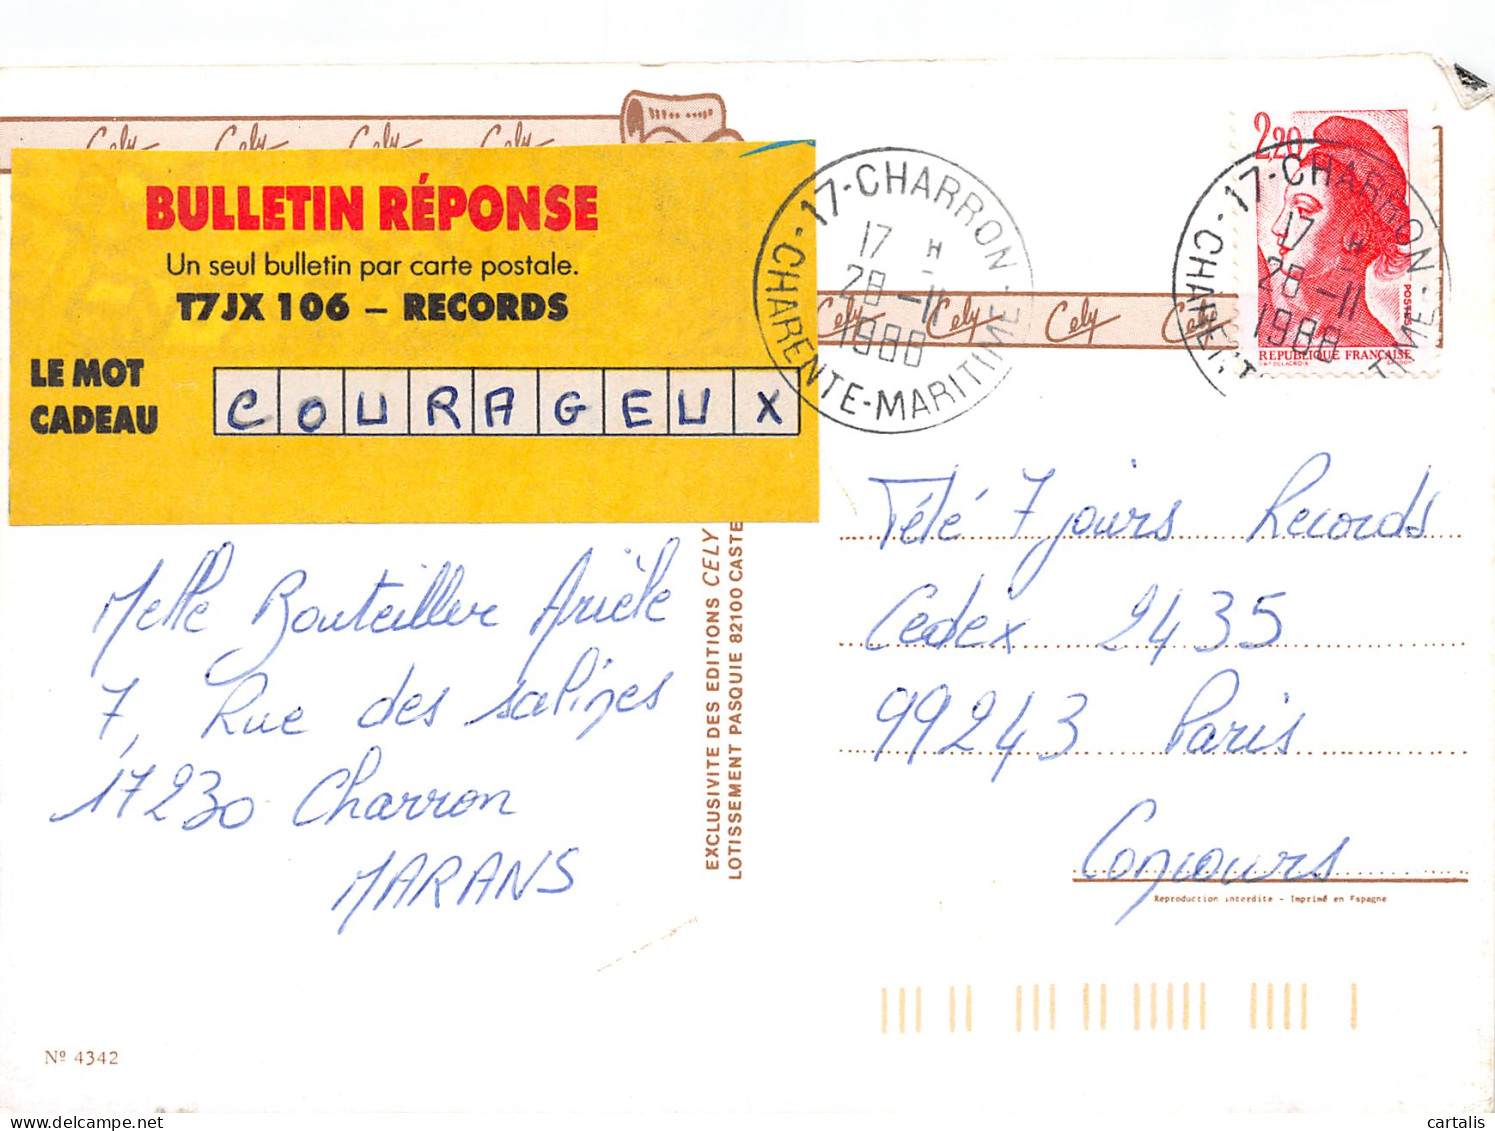 Cely Cely Cely Cely
BULLETIN RÉPONSE
Un seul bulletin par carte postale.
T7JX 106 – RECORDS
LE MOT
CADEAU
COURAGEUX
17-CHARRON
17 H
28-11
1988
-CHARENTE-MARITIME-
Cely Cely Cely Cely
2,20
POSTES
REPUBLIQUE FRANÇAISE
17-CHARRON
17 H
28-11
1988
Melle Bouteiller Arièle
7, Rue des salines
17230 Charron
MARANS
EXCLUSIVITE DES EDITIONS CELY
LOTISSEMENT PASQUIE 82100 CASTE
Télé 7 jours Records
Cedex 2435
99243 Paris
Concours
Reproduction interdite - Imprimé en Espagne
Nº 4342
cartalis